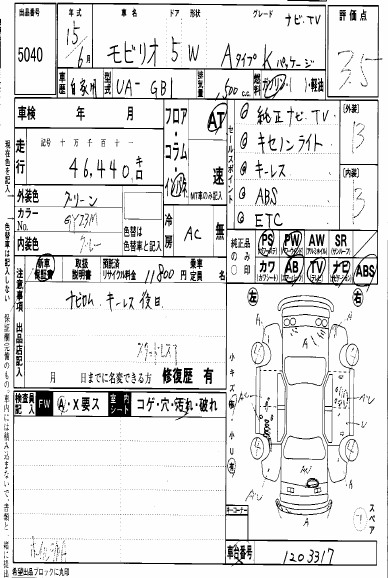 出品番号
5040
年式
15年
6月
車名 ドア 形状
モビリオ 5W
グレード
ナビ.TV
Aタイプ Kパッケージ
評価点
3.5
車歴
自家用
型式
UA-GB1
排気量
1,500cc
燃料
ガソリン・軽油
車検 年 月
走行
記号 十万 千 百 十 一
46,440 キロ
外装色
グリーン
カラーNo.
内装色
グレー
色替は
色替車と記入
フロア・コラム・インパネ
AT
速
MT車のみ記入
冷房
AC
無
セールスポイント
① 純正ナビ.TV
② キセノンライト
③ キーレス
④ ABS
⑤ ETC
【外装】
B
【内装】
B
純正品のみ○印
PS PW AW SR
カワ AB TV ナビ ABS
新車保証書
取扱説明書
預託済リサイクル料金
11800円
乗車定員 名
注意事項
出品店記入
ナビロム、キーレス後日
スタッドレス
月 日までに名変できる方
修復歴 有
検査員記入
FW
A・X要ス
室内シート
コゲ・穴・汚れ・破れ
左
右
小キズ
小U有
A
A
スペア
コーナー
車台番号
1203317
現在色を記入
色替車は記入しない
保証欄完備のもの。
車内には積み込まないで、書類と一緒に提出
希望出品ブロックに丸印